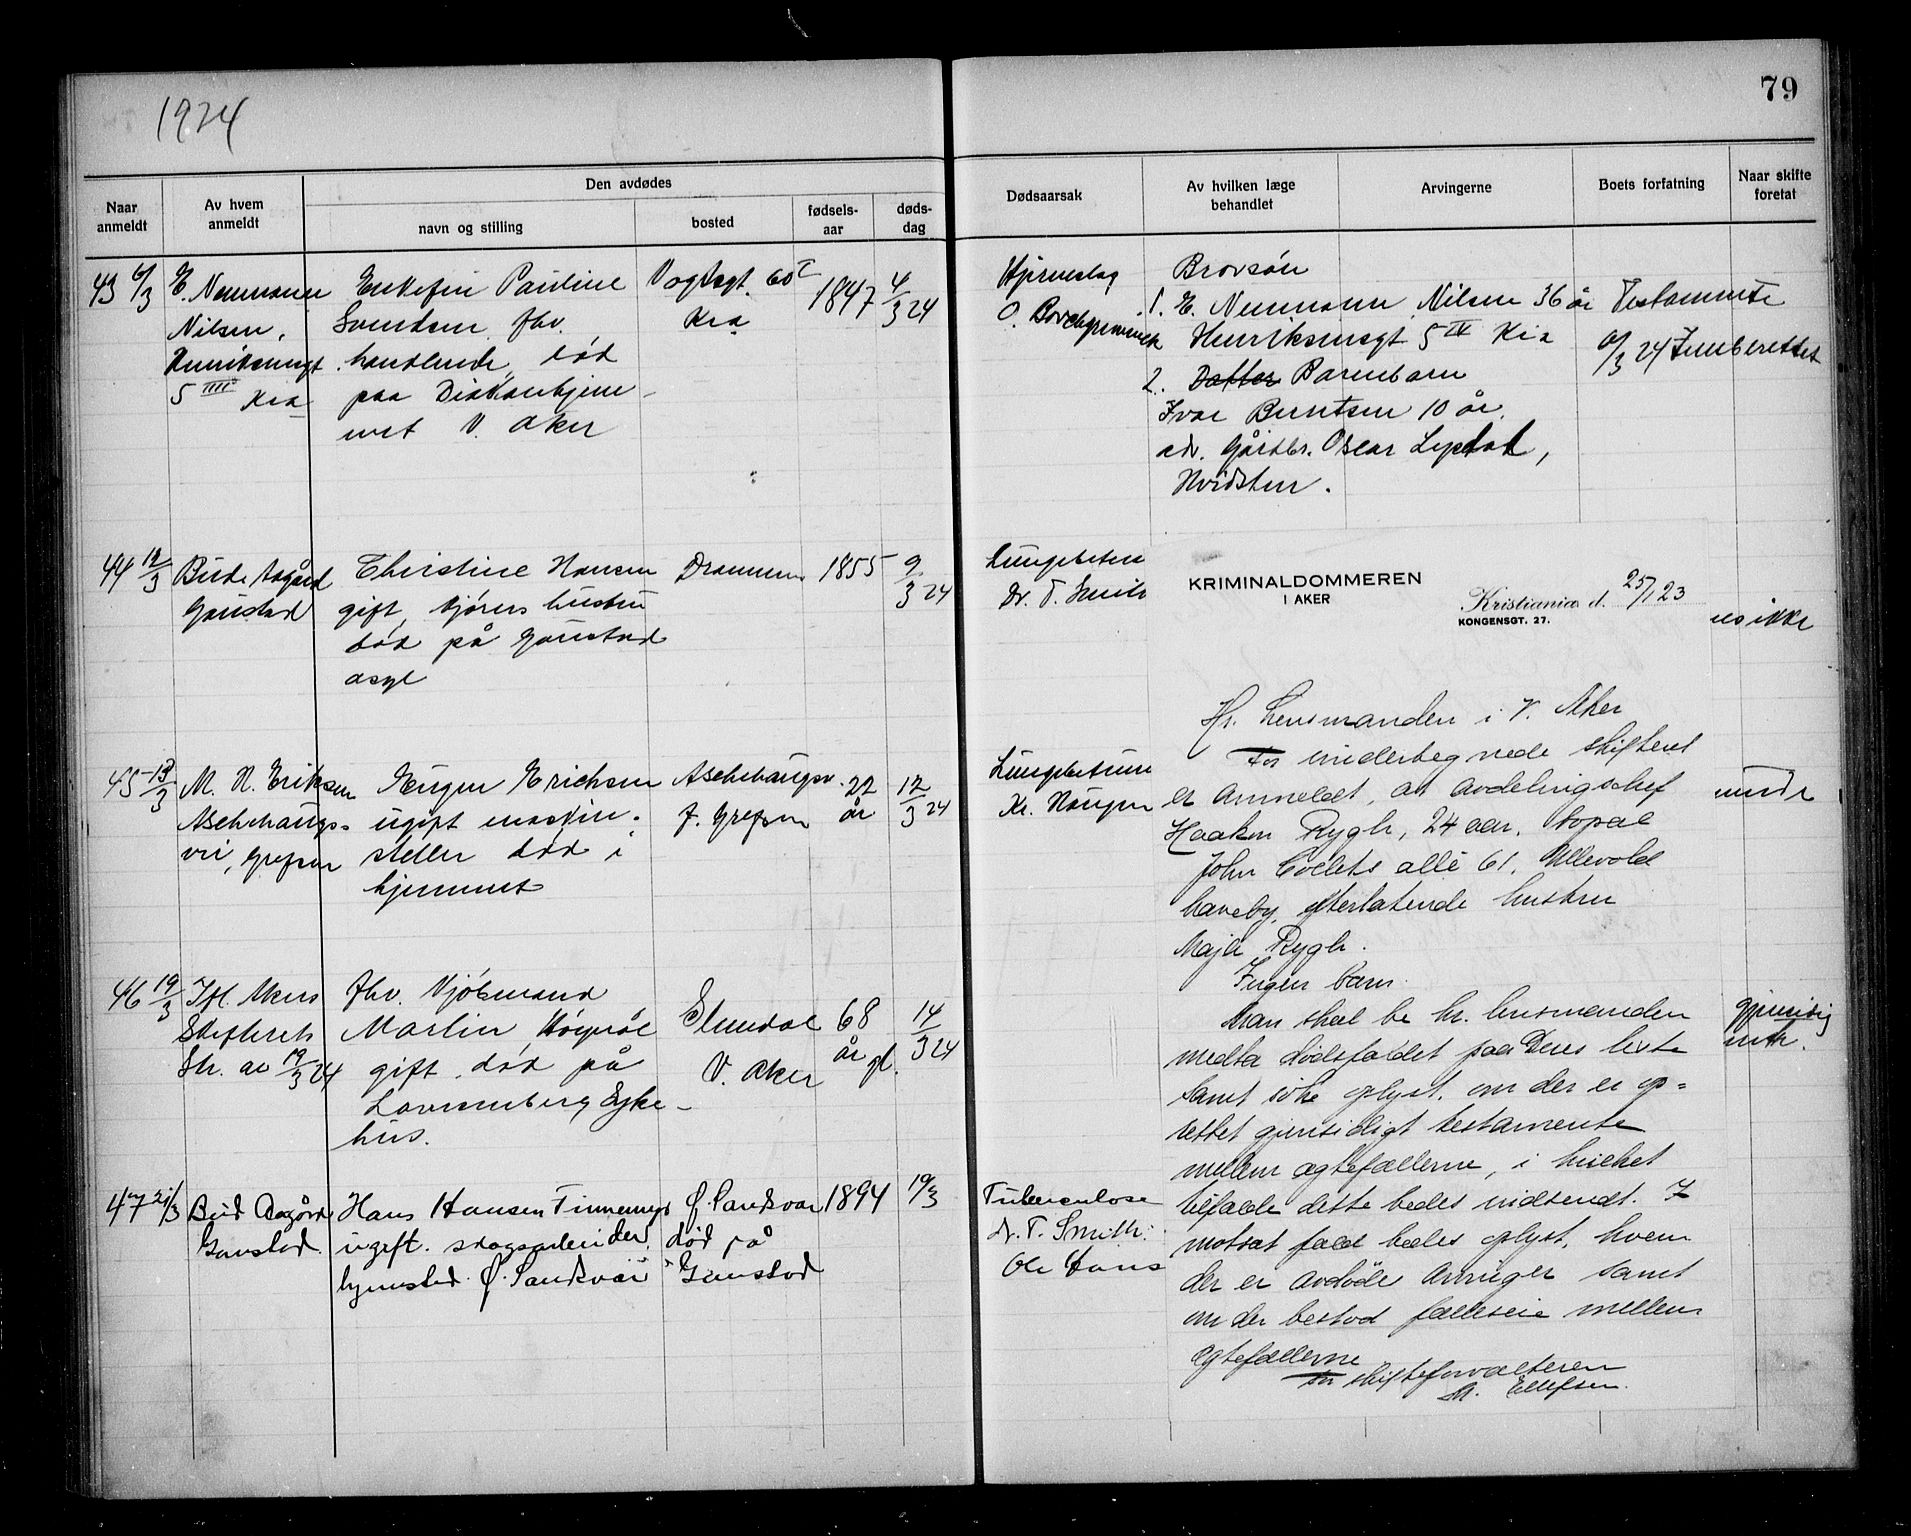 1924
79
Naar anmeldt
Av hvem anmeldt
Den avdødes
navn og stilling
bosted
fødsels-aar
døds-dag
Dødsaarsak
Av hvilken læge behandlet
Arvingerne
Boets forfatning
Naar skifte foretat
43 6/3
E. Neumann
Nilsen,
Henriksensgt
5 IIII Kra
Enkefru Pauline
Svendsen fhv.
handlende, død
paa Diakonhjem-
met V. Aker
Vogtsgt. 60
Kra
1847
4/3 24
Hjerneslag
O.
Brorsøn
1. E. Neumann Nilsen 36 år
Henriksensgt 5 IV Kra
2. Datter Barnebarn
Ivar Berntsen 10 år.
adr. Gårdbr. Oscar
Hvidsten.
Testamente
6/3 24 Innberettet
44 12/3
Bude Aagård
Gaustad
Christine Hansen
gift, kjørers hustru
død på Gaustad
asyl
Drammen
1855
9/3 24
Lungebeten
Dr. T. Smith
KRIMINALDOMMEREN
I AKER
Kristiania d. 25/1 23
KONGENSGT. 27.
ikke
Hr. Lensmanden i V. Aker
For underbegnede skifteret
er anmeldt, at avdelingschef
Haakon Rygh, 24 aar, bopæl
John Collets allè 61, Ullevold
haveby, efterlatende hustru
Maja Rygh.
Ingen barn.
Man skal be hr. lensmanden
medta dødsfaldet paa Deres liste
samt søke oplyst, om der er op-
rettet gjensidigt testamente
mellem ægtefællerne, i hvilket
tilfælde dette bedes indsendt. I
motsat fald bedes oplyst, hvem
der er avdøde arvinger samt
om der bestod fælleseie mellem
ægtefællerne
for skifteforvalteren
Ellefsen.
45 13/3
M. H. Eriksen
Aschehougs-
vei, Grefsen
Eugen Erichsen
ugift maskin-
steller død i
hjemmet
Aschehougsv.
f. Grefsen
22
år
12/3 24
Kr. Haugen
46 19/3
Akers
Skifterets
Skr. av 19/3 24
fhv. kjøbmand
Martin
gift, død på
Lovisenberg Syke-
hus.
V. Aker
68
år gl.
14/3 24
gjensidig
47 21/3
Bud Aagård
Gaustad.
Hans Hansen
ugift. skogsarbeider,
hjemsted Ø. Sandsvær
Ø. Sandsvær
død på
Gaustad
1894
19/3
Tuberculose
dr. T. Smith.
Ole Hans